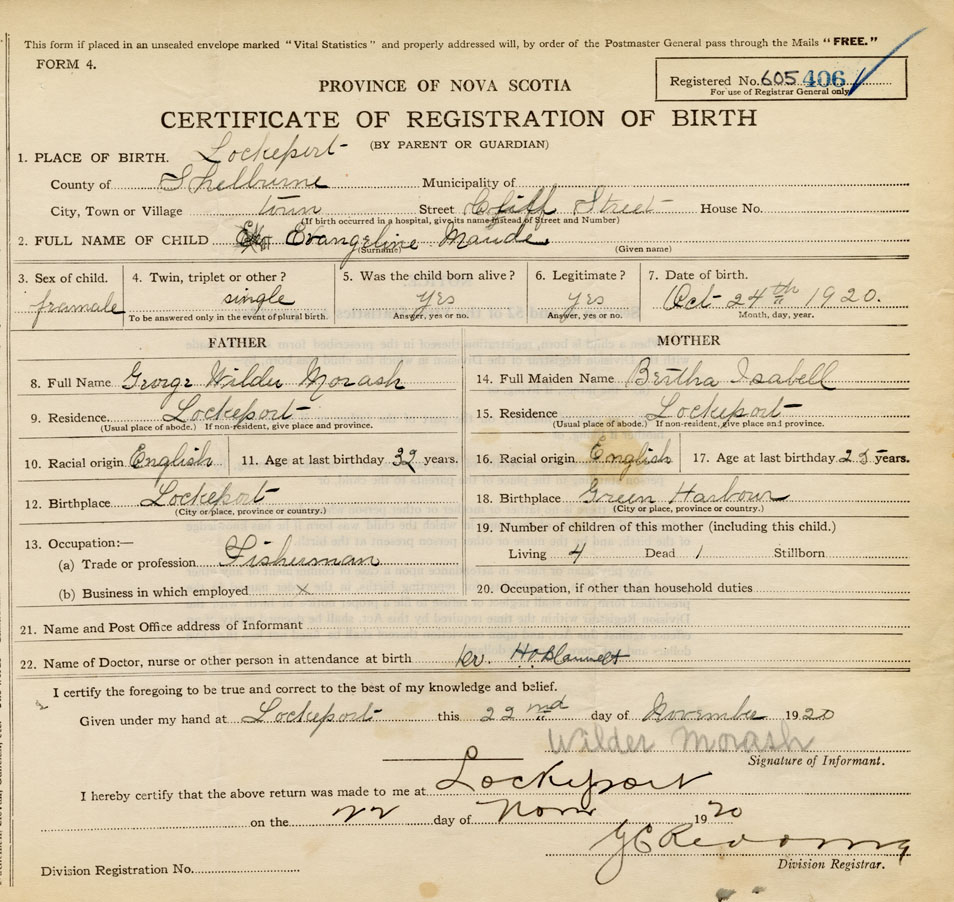 This form if placed in an unsealed envelope marked "Vital Statistics" and properly addressed will, by order of the Postmaster General pass through the Mails "FREE."
FORM 4.
Registered No. 605 406
For use of Registrar General only
PROVINCE OF NOVA SCOTIA
CERTIFICATE OF REGISTRATION OF BIRTH
(BY PARENT OR GUARDIAN)
1. PLACE OF BIRTH. Lockeport
County of Shelburne Municipality of
City, Town or Village town Street Cliff Street House No.
(If birth occurred in a hospital, give its name instead of Street and Number)
2. FULL NAME OF CHILD Evangeline Maude
(Surname) (Given name)
3. Sex of child. 4. Twin, triplet or other? 5. Was the child born alive? 6. Legitimate? 7. Date of birth.
framale single Yes Yes Oct 24th 1920.
To be answered only in the event of plural birth. Answer, yes or no. Answer, yes or no. Month, day, year.
FATHER MOTHER
8. Full Name George Wilder Morash 14. Full Maiden Name Bertha Isabell
9. Residence Lockeport 15. Residence Lockeport
(Usual place of abode.) If non-resident, give place and province. (Usual place of abode.) If non-resident, give place and province.
10. Racial origin English 11. Age at last birthday 32 years. 16. Racial origin English 17. Age at last birthday years.
12. Birthplace Lockeport 18. Birthplace Green Harbour
(City or place, province or country.) (City or place, province or country.)
13. Occupation:— 19. Number of children of this mother (including this child.)
(a) Trade or profession Fisherman Living 4 Dead 1 Stillborn
(b) Business in which employed x 20. Occupation, if other than household duties
21. Name and Post Office address of Informant
22. Name of Doctor, nurse or other person in attendance at birth Dr.
I certify the foregoing to be true and correct to the best of my knowledge and belief.
Given under my hand at Lockeport this 22nd day of November 1920
Wilder Morash
Signature of Informant.
I hereby certify that the above return was made to me at Lockeport
on the 22 day of Nov 1920
Division Registrar.
Division Registration No.